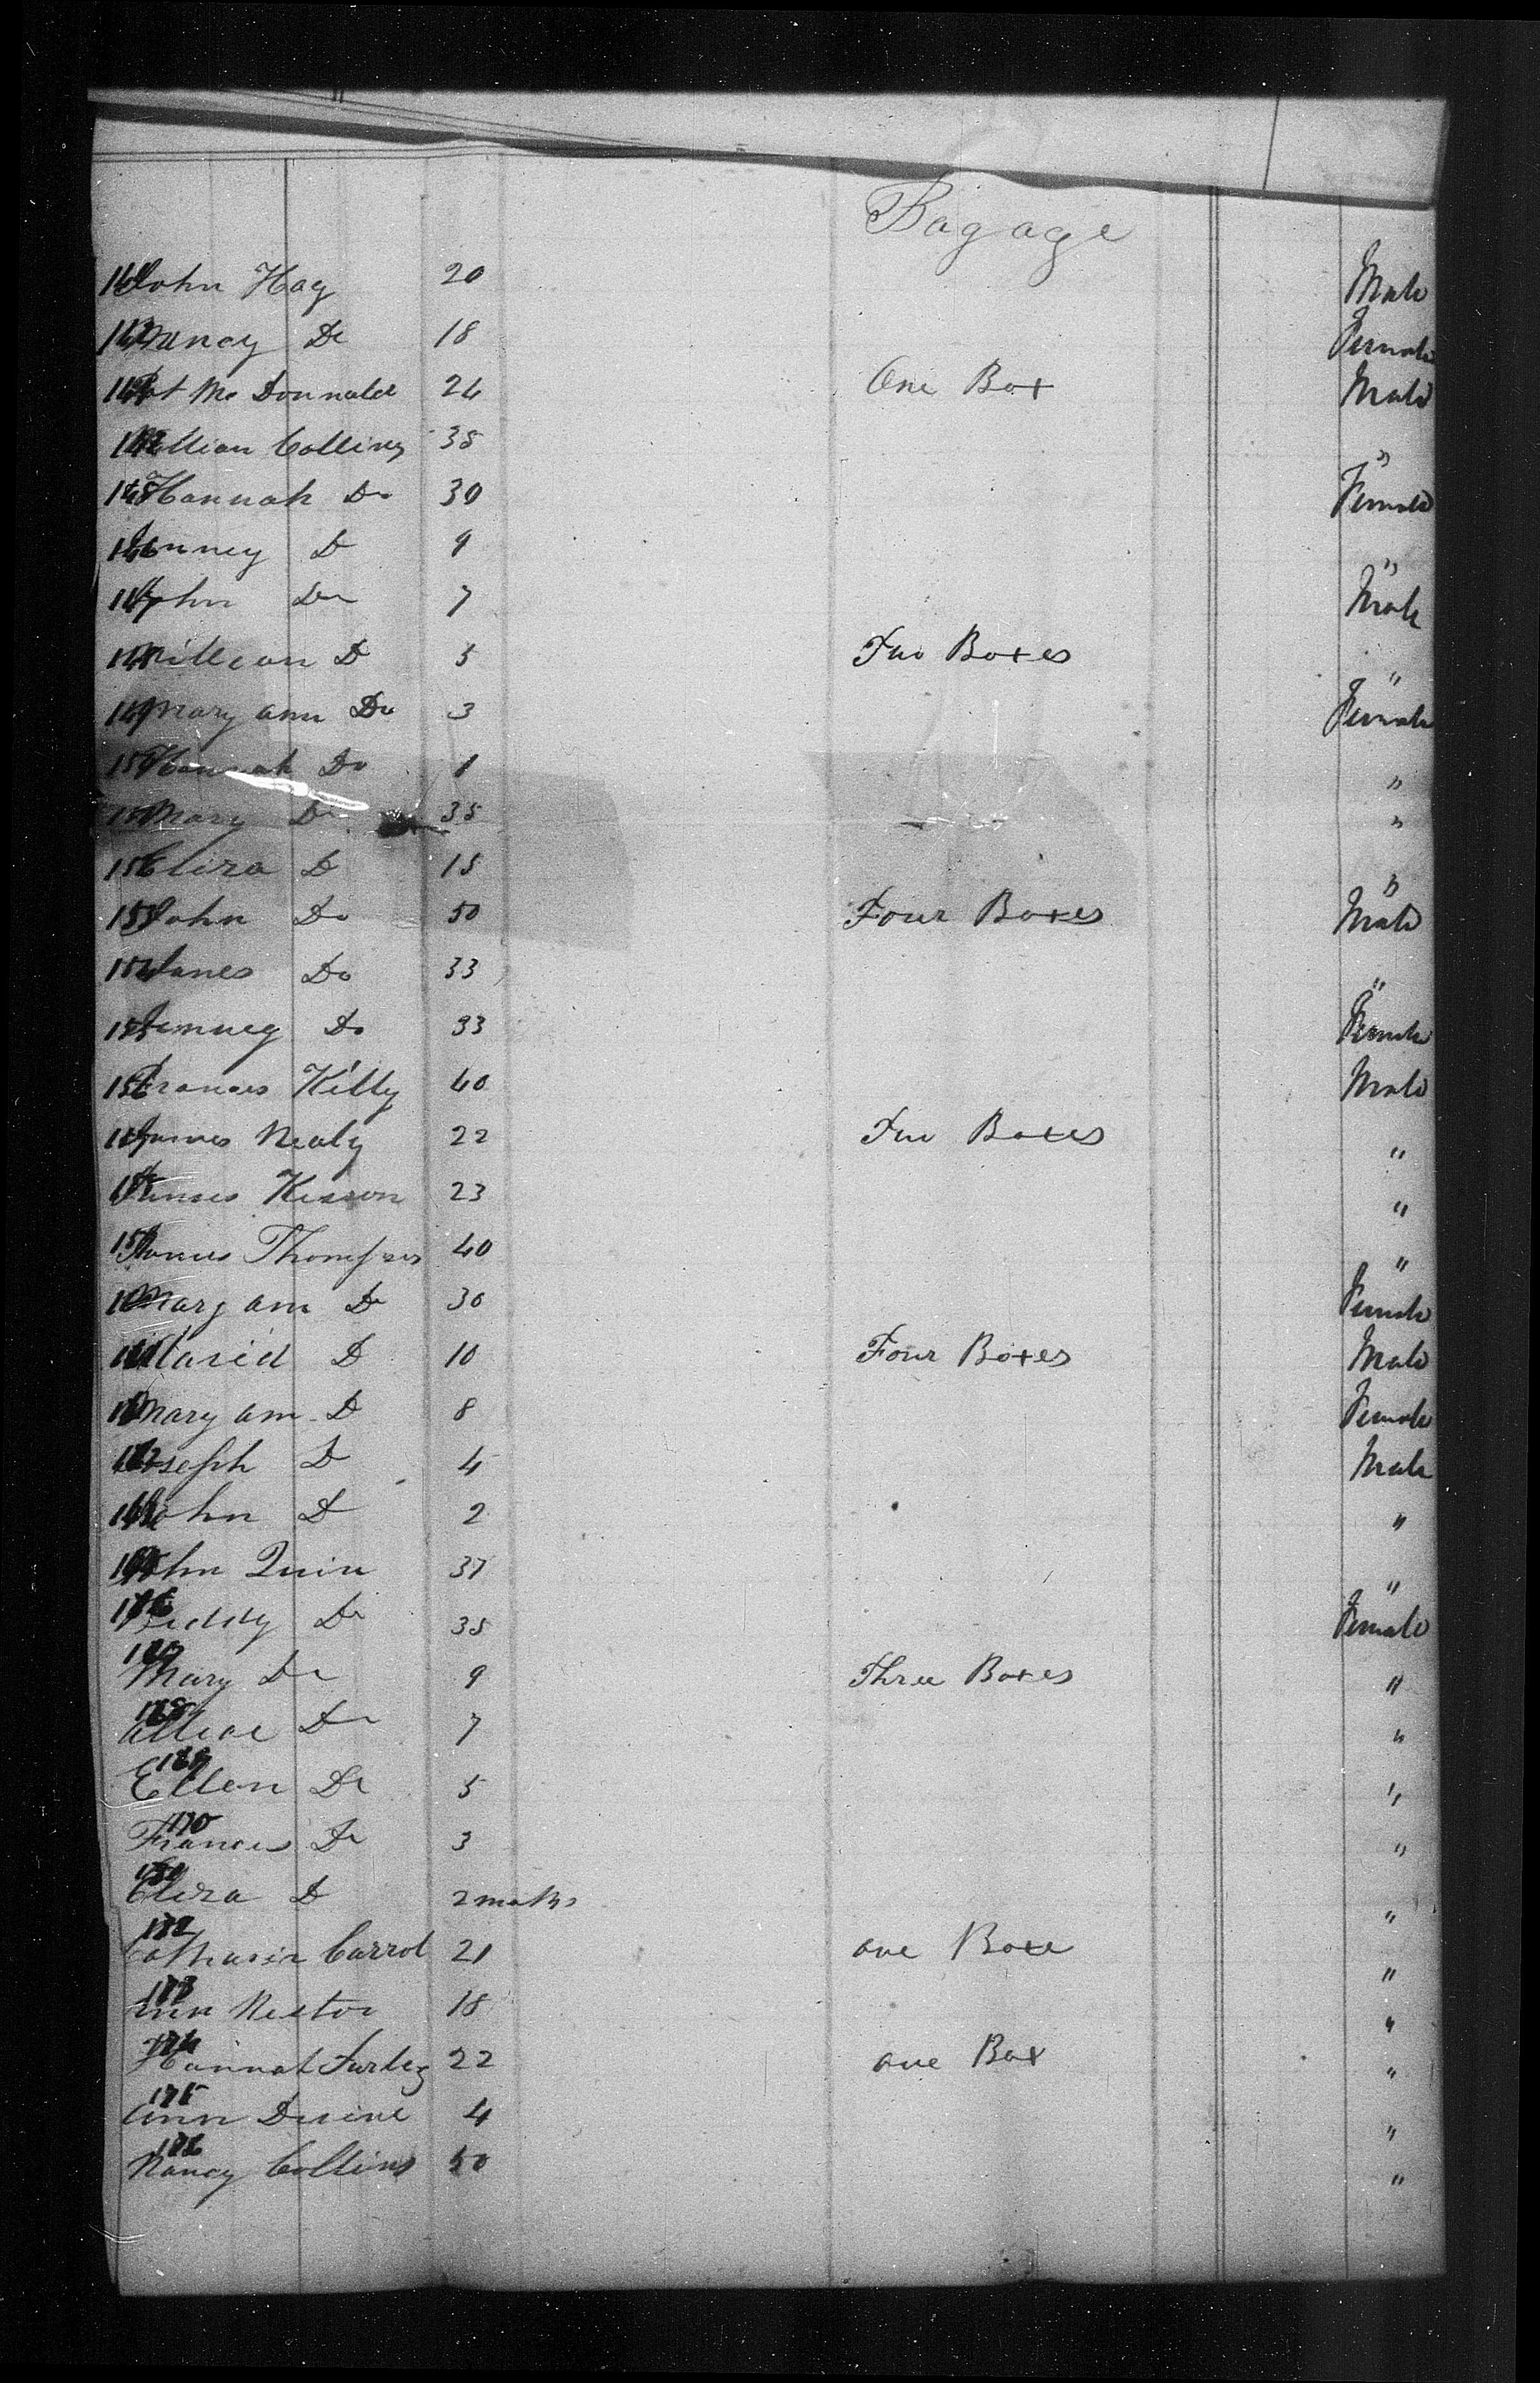 Bagage
John Hag 20 Male
Nancy Do 18 Female
Pat Mc Donnald 24 One Box Male
Willian Collins 38 "
148 Hannah Do 30 Female
146 Jenney D 9 "
John Do 7 Male
William D 5 Two Boxes "
149 Mary ann Do 3 Female
150 Hannah Do 1 "
Mary Do 35 "
Eliza D 15 "
153 John Do 50 Four Boxes Male
154 James Do 33 "
155 Jenney Do 33 Female
156 Frances Killy 40 Male
James Nealy 22 Two Boxes "
23 "
159 James Thompson 40 "
Mary ann Do 30 Female
David D 10 Four Boxes Male
Mary ann D 8 Female
Joseph D 4 Male
John D 2 "
John Quin 37 "
Biddy Do 35 Female
Mary Do 9 Three Boxes "
Allice Do 7 "
Ellen Do 5 "
170 Frances Do 3 "
Eliza D 2 "
Catharin Carrol 21 one Boxe "
Ann Nestor 18 "
Hannah Furley 22 one Box "
175 Ann Devine 4 "
Nancy Collins 50 "